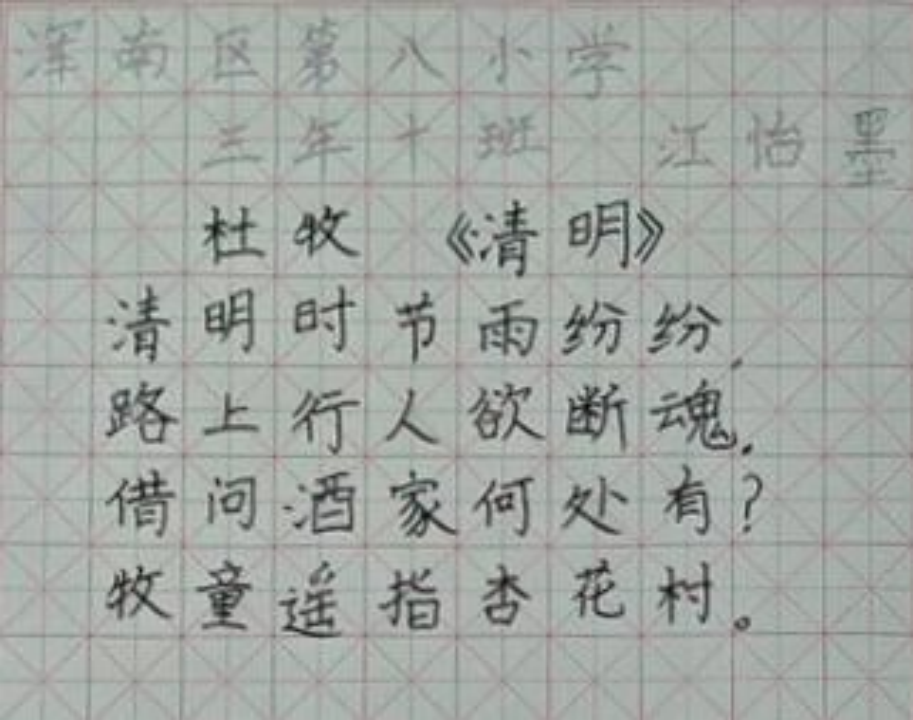 浑南区第八小学
三年十班 江怡墨
杜牧 《清明》
清明时节雨纷纷,
路上行人欲断魂.
借问酒家何处有?
牧童遥指杏花村。